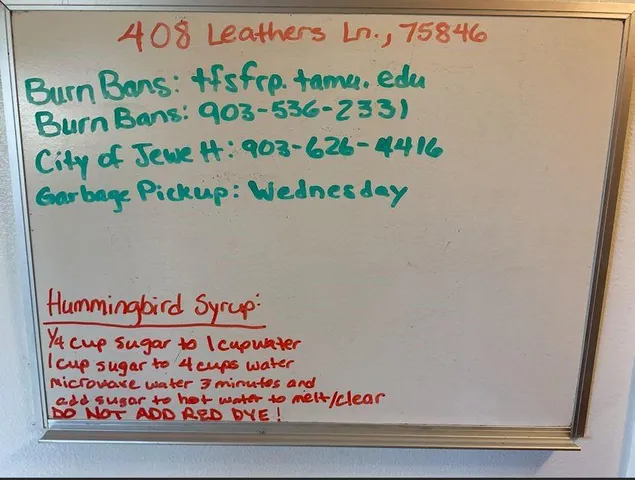 408 Leathers Ln., 75846
Burn Bans: tfsfrp.tamu.edu
Burn Bans: 903-536-2331
City of Jewett: 903-626-4416
Garbage Pickup: Wednesday
Hummingbird Syrup:
1/4 cup sugar to 1 cup water
1 cup sugar to 4 cups water
microwave water 3 minutes and
add sugar to hot water to melt/clear
DO NOT ADD RED DYE!